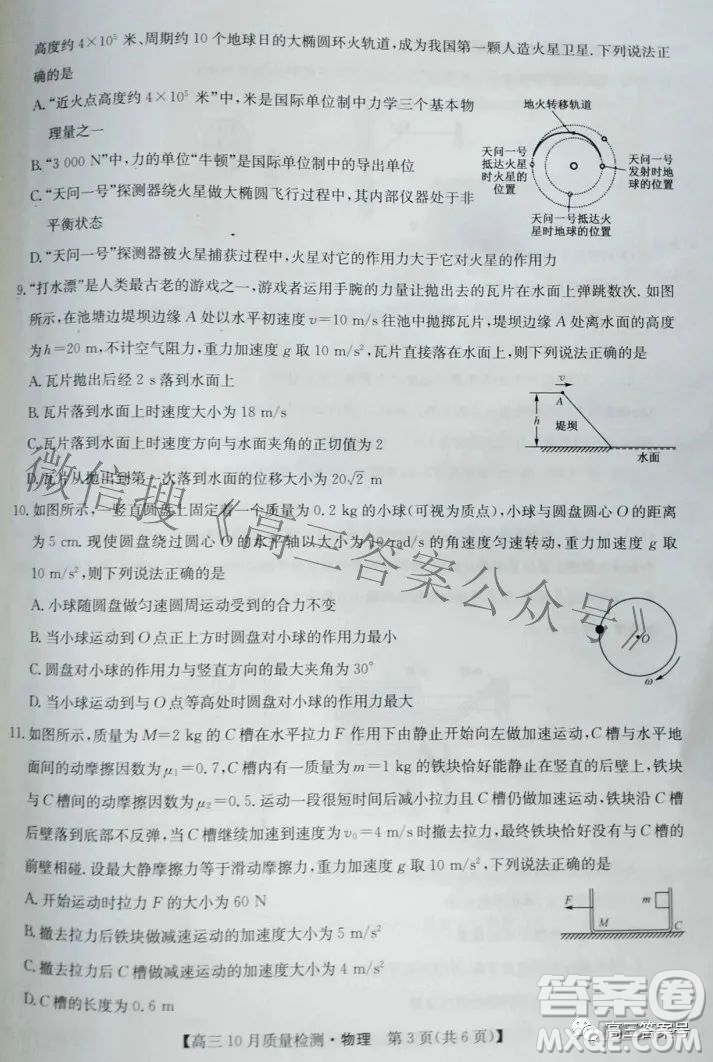 高度约 4×10⁵ 米、周期约 10 个地球日的大椭圆环火轨道，成为我国第一颗人造火星卫星. 下列说法正
确的是
A. “近火点高度约 4×10⁵ 米”中，米是国际单位制中力学三个基本物
理量之一
B. “3 000 N”中，力的单位“牛顿”是国际单位制中的导出单位
C. “天问一号”探测器绕火星做大椭圆飞行过程中，其内部仪器处于非
平衡状态
D. “天问一号”探测器被火星捕获过程中，火星对它的作用力大于它对火星的作用力
地火转移轨道
天问一号
抵达火星
时火星的
位置
天问一号
发射时地
球的位置
天问一号抵达火
星时地球的位置
9. “打水漂”是人类最古老的游戏之一，游戏者运用手腕的力量让抛出去的瓦片在水面上弹跳数次. 如图
所示，在池塘边堤坝边缘 A 处以水平初速度 v=10 m/s 往池中抛掷瓦片，堤坝边缘 A 处离水面的高度
为 h=20 m，不计空气阻力，重力加速度 g 取 10 m/s²，瓦片直接落在水面上. 则下列说法正确的是
A. 瓦片抛出后经 2 s 落到水面上
B. 瓦片落到水面上时速度大小为 18 m/s
C. 瓦片落到水面上时速度方向与水面夹角的正切值为 2
D. 瓦片从抛出到第一次落到水面的位移大小为 20√2 m
v
A
h
堤坝
水面
10. 如图所示，一竖直圆盘上固定着一个质量为 0.2 kg 的小球(可视为质点)，小球与圆盘圆心 O 的距离
为 5 cm. 现使圆盘绕过圆心 O 的水平轴以大小为 10 rad/s 的角速度匀速转动，重力加速度 g 取
10 m/s²，则下列说法正确的是
A. 小球随圆盘做匀速圆周运动受到的合力不变
B. 当小球运动到 O 点正上方时圆盘对小球的作用力最小
C. 圆盘对小球的作用力与竖直方向的最大夹角为 30°
D. 当小球运动到与 O 点等高处时圆盘对小球的作用力最大
O
ω
11. 如图所示，质量为 M=2 kg 的 C 槽在水平拉力 F 作用下由静止开始向左做加速运动，C 槽与水平地
面间的动摩擦因数为 μ₁=0.7，C 槽内一质量为 m=1 kg 的铁块恰好能静止在竖直的后壁上，铁块
与 C 槽间的动摩擦因数为 μ₂=0.5. 运动一段很短时间后减小拉力且 C 槽仍做加速运动，铁块沿 C 槽
后壁落到底部不反弹，当 C 槽继续加速到速度为 v₀=4 m/s 时撤去拉力，最终铁块恰好没有与 C 槽的
前壁相碰. 设最大静摩擦力等于滑动摩擦力，重力加速度 g 取 10 m/s²，下列说法正确的是
A. 开始运动时拉力 F 的大小为 60 N
B. 撤去拉力后铁块做减速运动的加速度大小为 5 m/s²
C. 撤去拉力后 C 槽做减速运动的加速度大小为 4 m/s²
D. C 槽的长度为 0.6 m
F
m
M
C
【高三 10 月质量检测·物理 第 3 页(共 6 页)】
微信搜《高三答案公众号》
答案圈
MXQE.COM
高三答案号